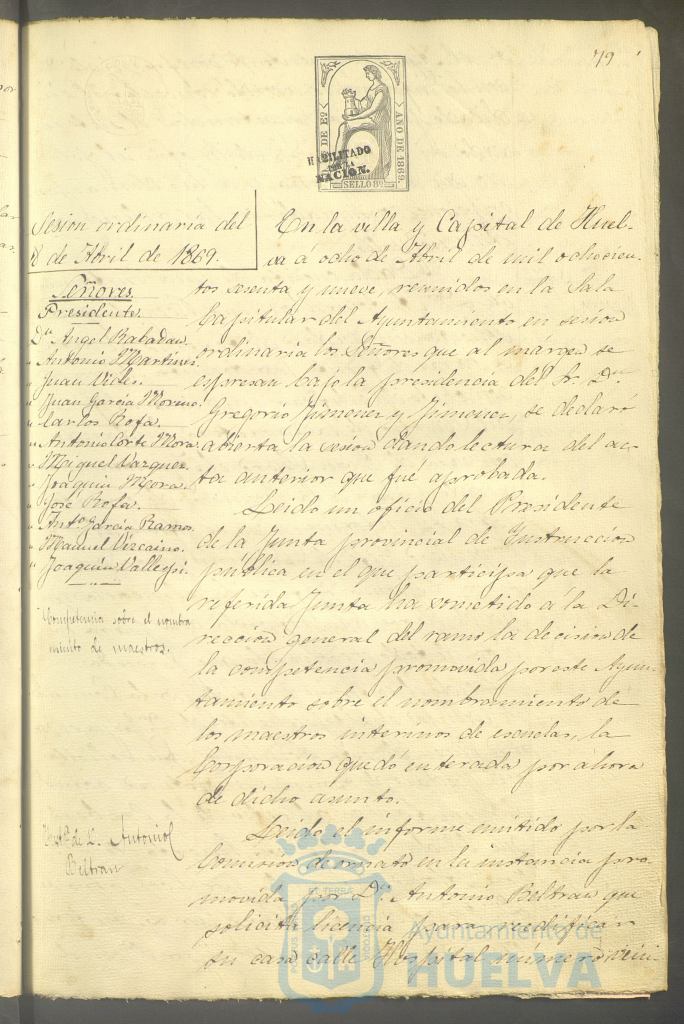 79
DE Eº
AÑO DE 1869.
HABILITADO
POR LA
NACION.
SELLO 8º
Sesion ordinaria del
8 de Abril de 1869.
Señores.
Presidente.
Dn Angel Rabadan.
" Antonio Martinez.
" Juan Viles.
" Juan Garcia Moreno.
" Carlos Rofa.
" Antonio Corte Mora.
" Miguel Vazquez.
" Joaquin Mora.
" José Rofa.
" Anto Garcia Ramos.
" Manuel Vizcaino.
" Joaquin Vallespi.
Competencia sobre el nombra
miento de maestros.
Insta de D. Antonio
Beltran
En la villa y Capital de Huel-
va á ocho de Abril de mil ochocien-
tos sesenta y nueve, reunidos en la Sala
Capitular del Ayuntamiento en sesion
ordinaria los Señores que al márgen se
espresan bajo la presidencia del Sr. Dn
Gregorio Jimenez y Jimenez, se declaró
abierta la sesion dando lectura del ac-
ta anterior que fué aprobada.
Leido un oficio del Presidente
de la Junta provincial de Instruccion
pública en el que participa que la
referida Junta ha sometido á la Di-
reccion general del ramo la decision de
la competencia promovida por este Ayun-
tamiento sobre el nombramiento de
los maestros interinos de escuelas, la
Corporacion quedó enterada por ahora
de dicho asunto.
Leido el informe emitido por la
Comision de ornato en la instancia pro-
movida por Dn Antonio Beltran que
solicita licencia para reedificar
su casa calle Hospital número vein-
Ayuntamiento de
HUELVA